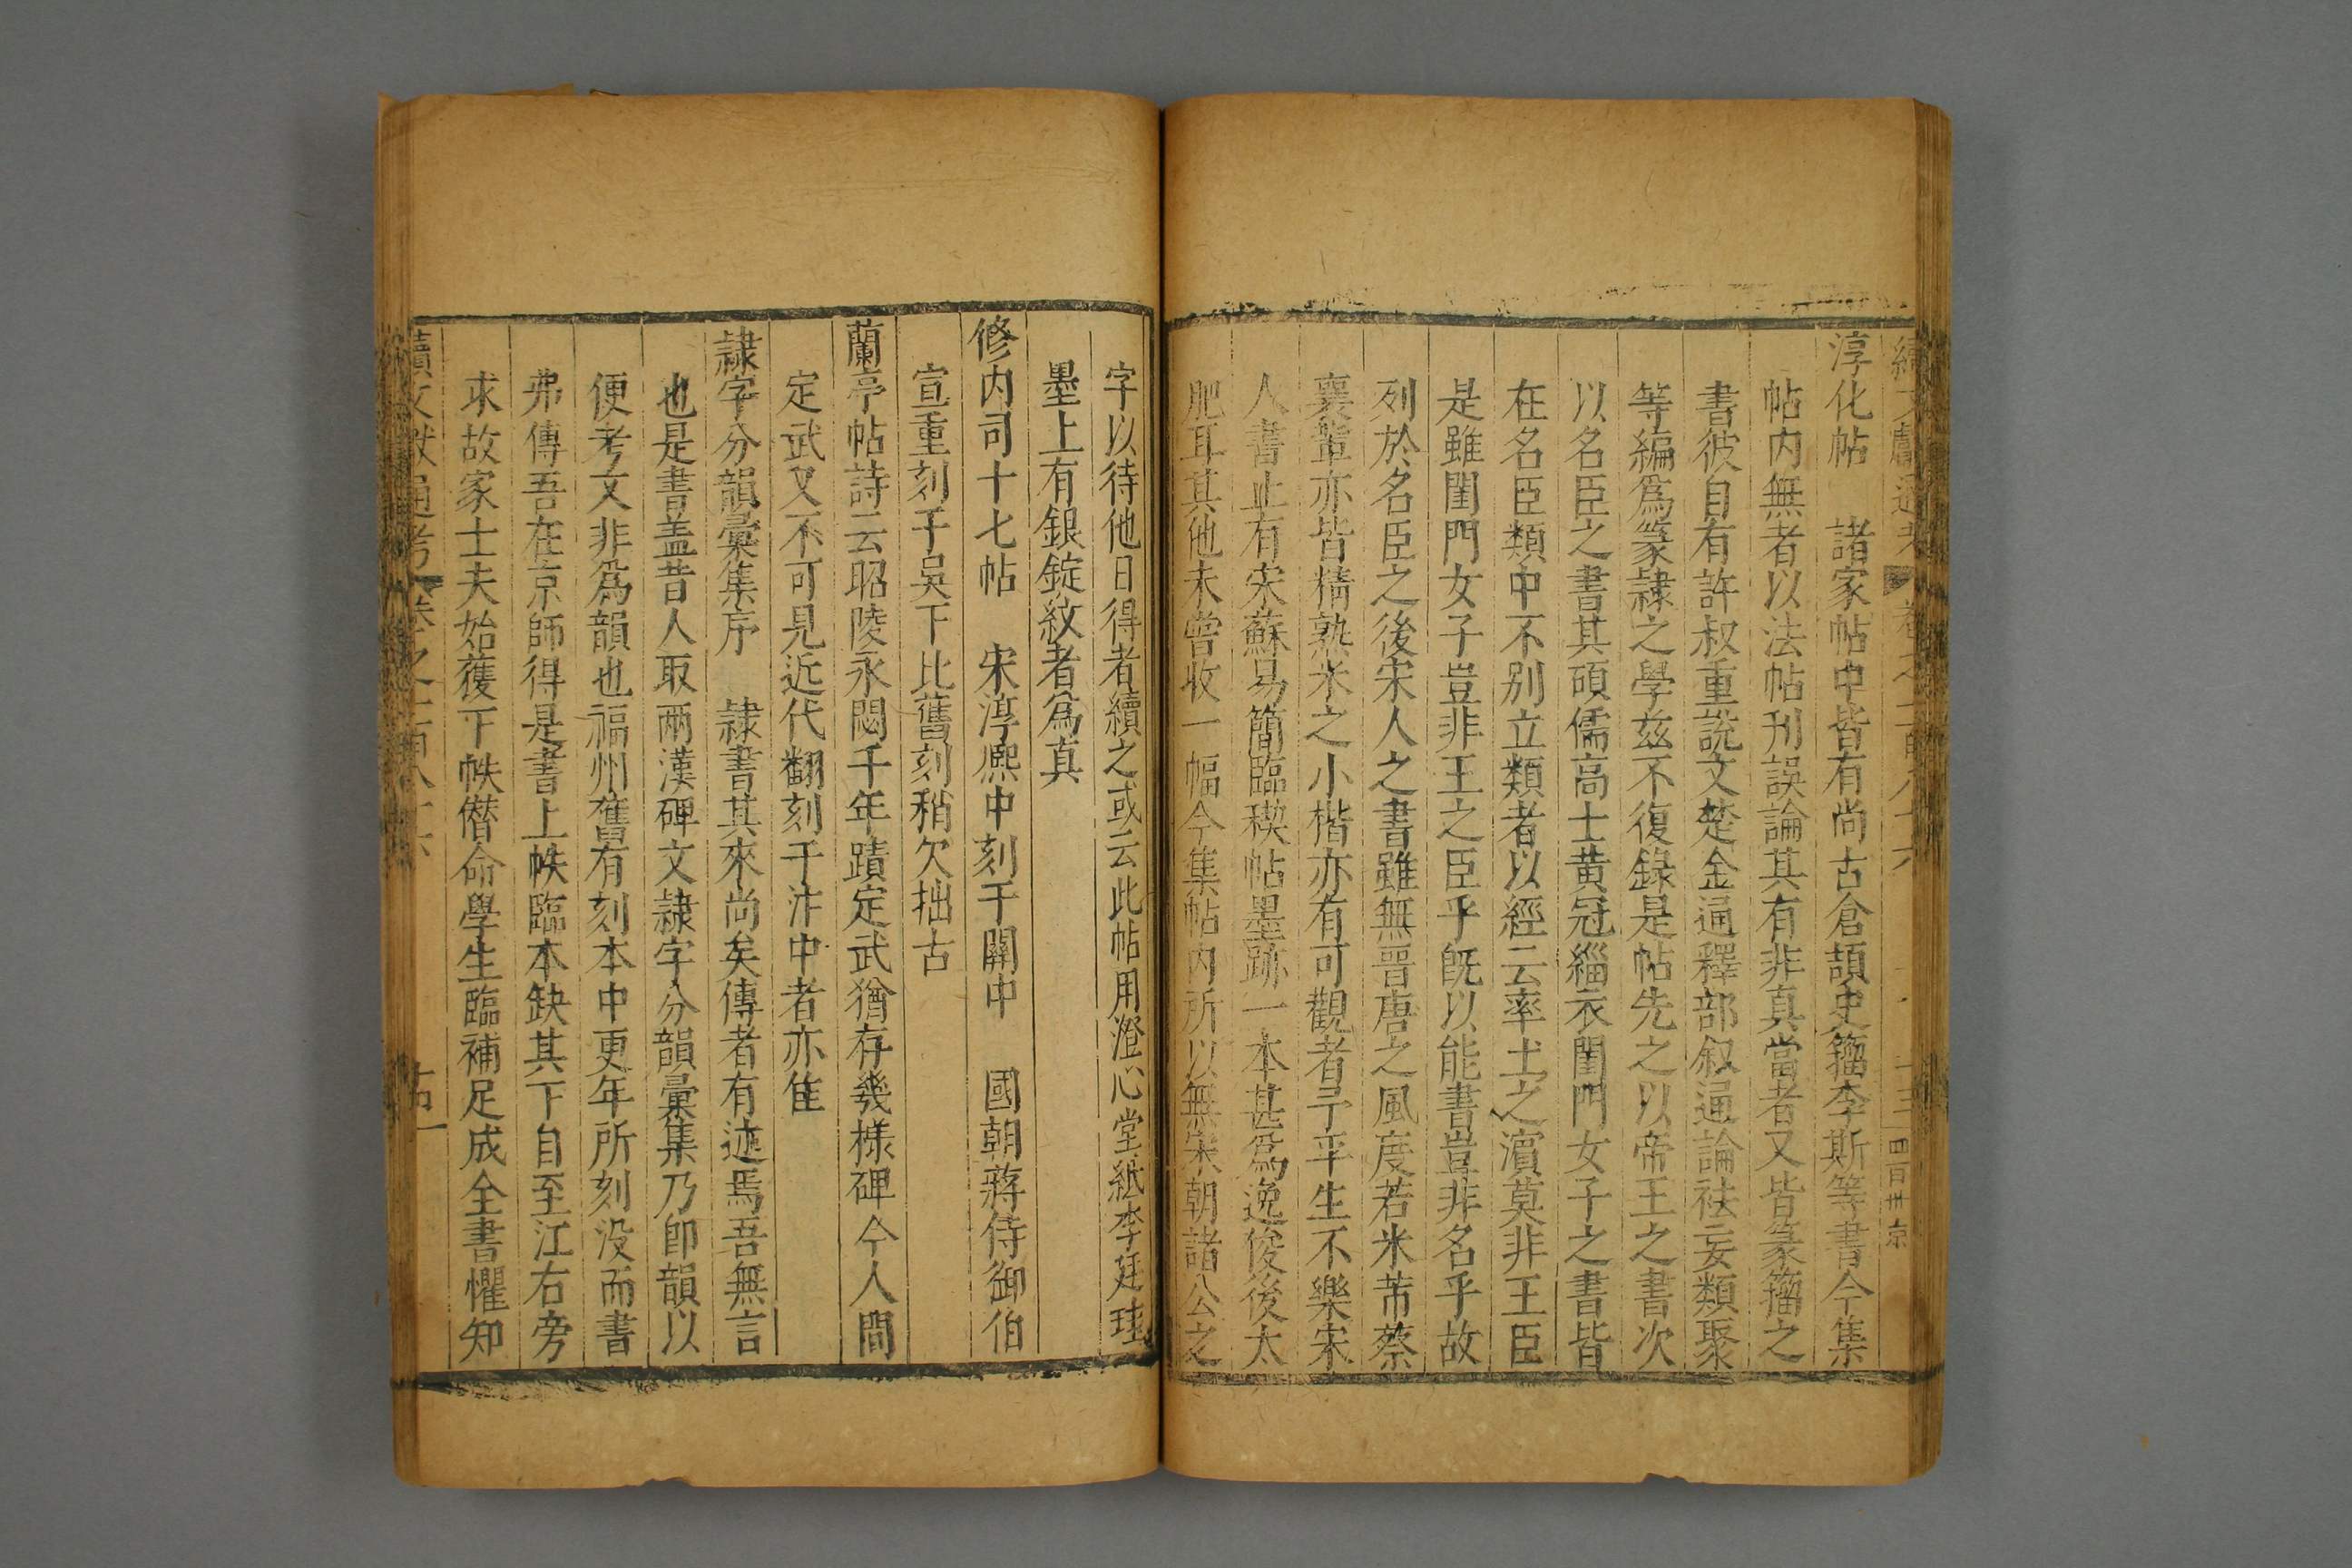 續文獻通考 卷之一百八十六 十三 四百卅 京
淳化帖 諸家帖中皆有尚古倉頡史籀李斯等書今集
帖內無者以法帖刊誤論其有非真當者又皆篆籀之
書彼自有許叔重說文楚金通釋部叙通論祛妄類聚
等編爲篆隷之學兹不復錄是帖先之以帝王之書次
以名臣之書其碩儒高士黄冠緇衣閨門女子之書皆
在名臣類中不别立類者以經云率土之濵莫非王臣
是雖閨門女子豈非王之臣乎旣以能書豈非名乎故
列於名臣之後宋人之書雖無晉唐之風度若米芾蔡
襄輩亦皆精熟米之小楷亦有可觀者予平生不樂宋
人書止有宋蘇易簡臨稧帖墨跡一本甚爲逸俊後太
肥耳其他未嘗收一幅今集帖內所以無宋朝諸公之
字以待他日得者續之或云此帖用澄心堂紙李廷珪
墨上有銀錠紋者爲真
修内司十七帖 宋淳熈中刻于關中 國朝蔣侍御伯
宣重刻于吳下比舊刻稍欠拙古
蘭亭帖詩云昭陵永閟千年蹟定武猶存幾樣碑今人間
定武又不可見近代翻刻于汴中者亦佳
隷字分韻彙集序 隷書其來尚矣傳者有迹焉吾無言
也是書盖昔人取兩漢碑文隷字分韻彙集乃卽韻以
便考文非爲韻也福州舊有刻本中更年所刻没而書
弗傳吾在京師得是書上帙臨本缺其下自至江右旁
求故家士夫始獲下帙僣命學生臨補足成全書懼知
續文獻通考 卷之一百八十六